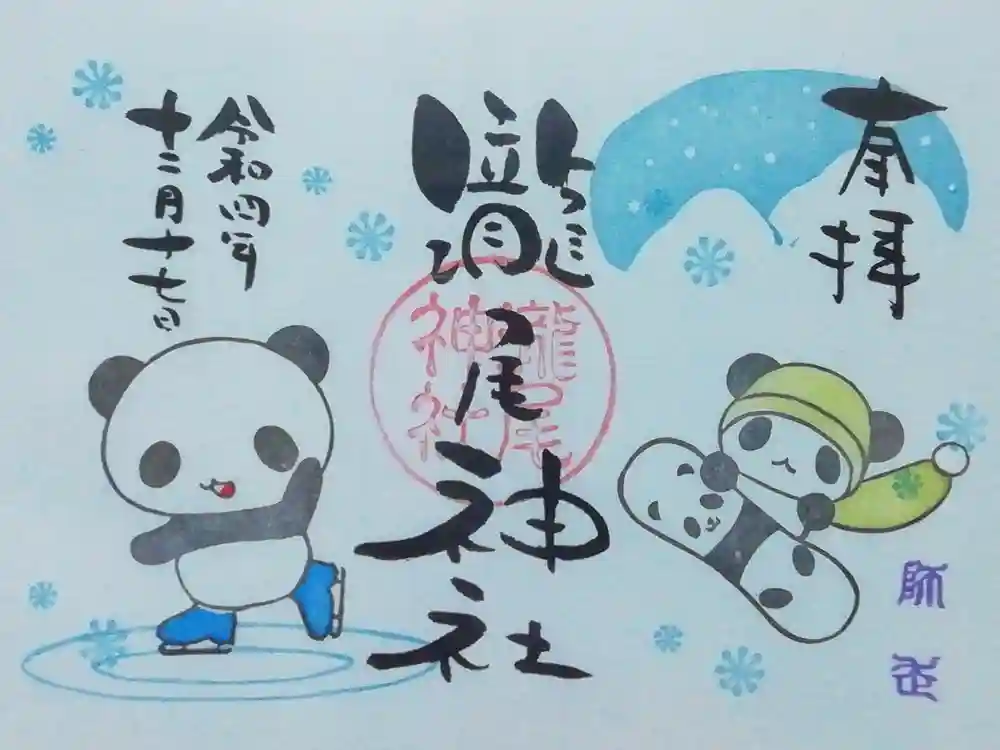 奉拝
瀧尾神社
瀧尾
神社
令和四年
十二月十七日
師走